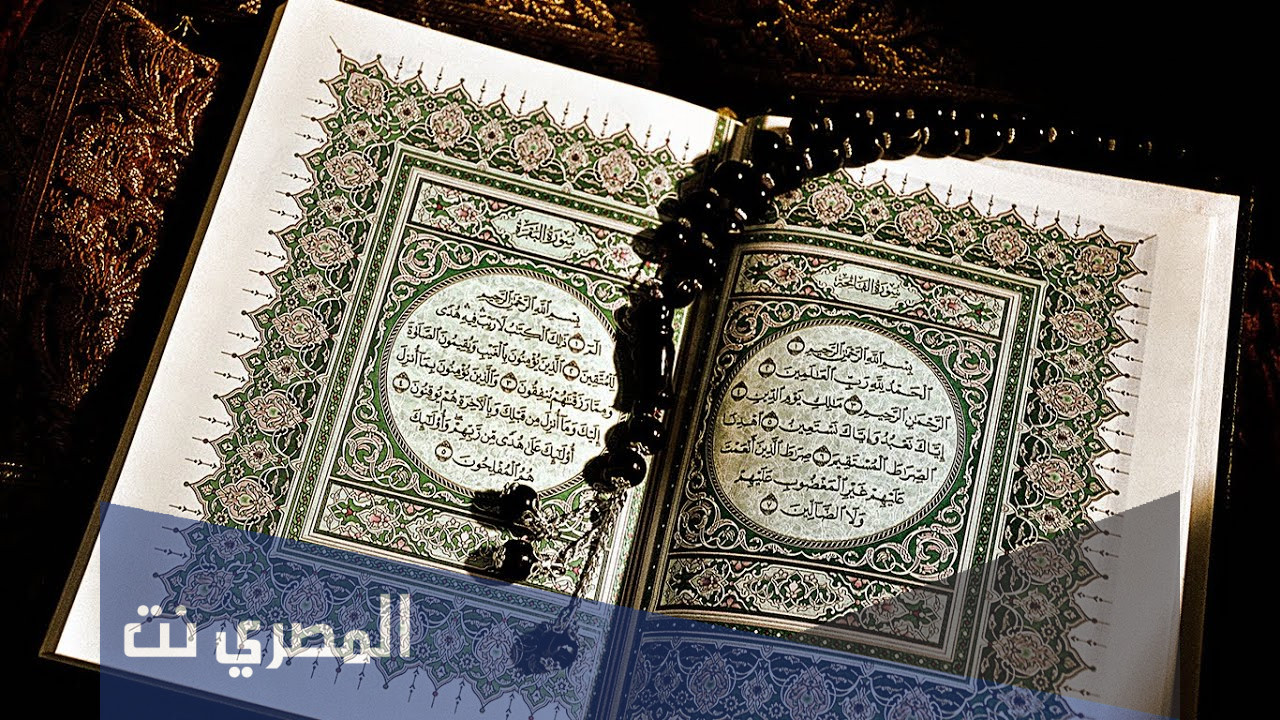 سورة الفاتحة
بسم الله الرحمن الرحيم ١
الحمد لله رب العلمين ٢
الرحمن الرحيم ٣ ملك يوم الدين ٤
إياك نعبد وإياك نستعين ٥ اهدنا
الصرط المستقيم ٦ صرط الذين أنعمت
عليهم غير المغضوب عليهم
ولا الضالين ٧
سورة البقرة
بسم الله الرحمن الرحيم
الم ١ ذلك الكتب لا ريب فيه هدى
للمتقين ٢ الذين يؤمنون بالغيب ويقيمون الصلوة
ومما رزقنهم ينفقون ٣ والذين يؤمنون بما أنزل
إليك وما أنزل من قبلك وبالآخرة هم يوقنون ٤
أولئك على هدى من ربهم وأولئك
هم المفلحون ٥
المصري نت